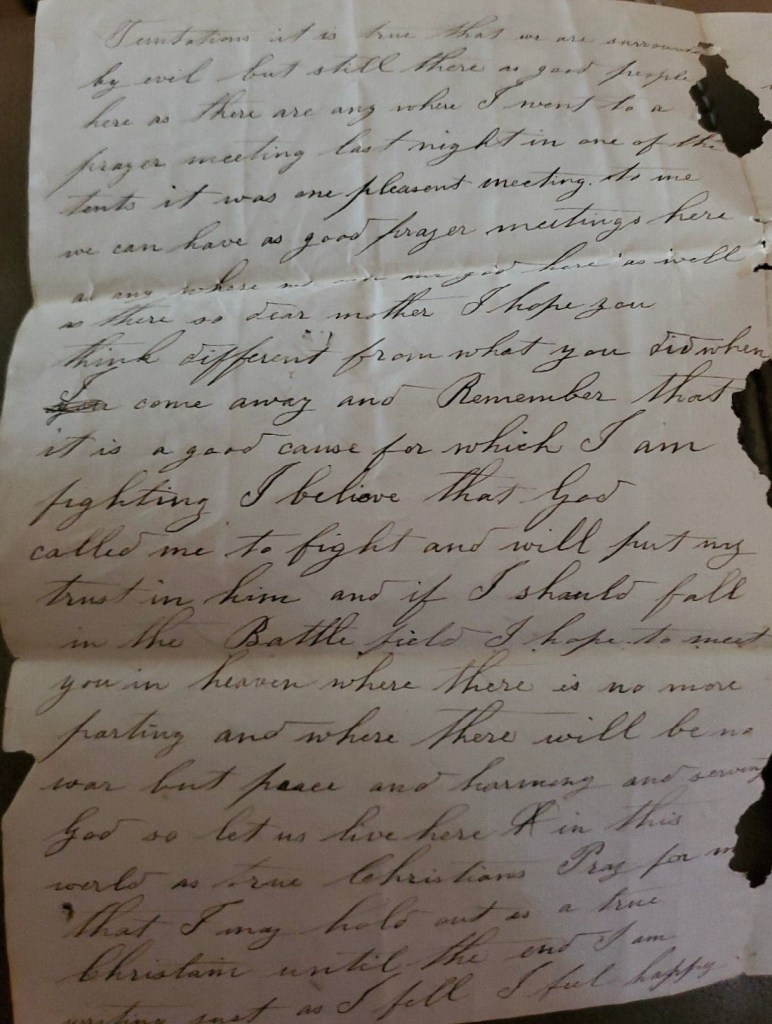 Temtations it is true that we are surround
by evil but still there as good people
here as there are any where I went to a
prayer meeting last night in one of the
tents it was one pleasent meeting. to me
we can have as good prayer meetings here
as any where god here as well
as there so dear mother I hope you
think different from what you did when
I come away and Remember that
it is a good cause for which I am
fighting I believe that God
called me to fight and will put my
trust in him and if I should fall
in the Battle field I hope to meet
you in heaven where there is no more
parting and where there will be no
war but peace and harmony and serving
God so let us live here in this
world as true Christians Pray for m
that I may hold out as a true
Christain until the end I am
writing just as I fell I feel happy